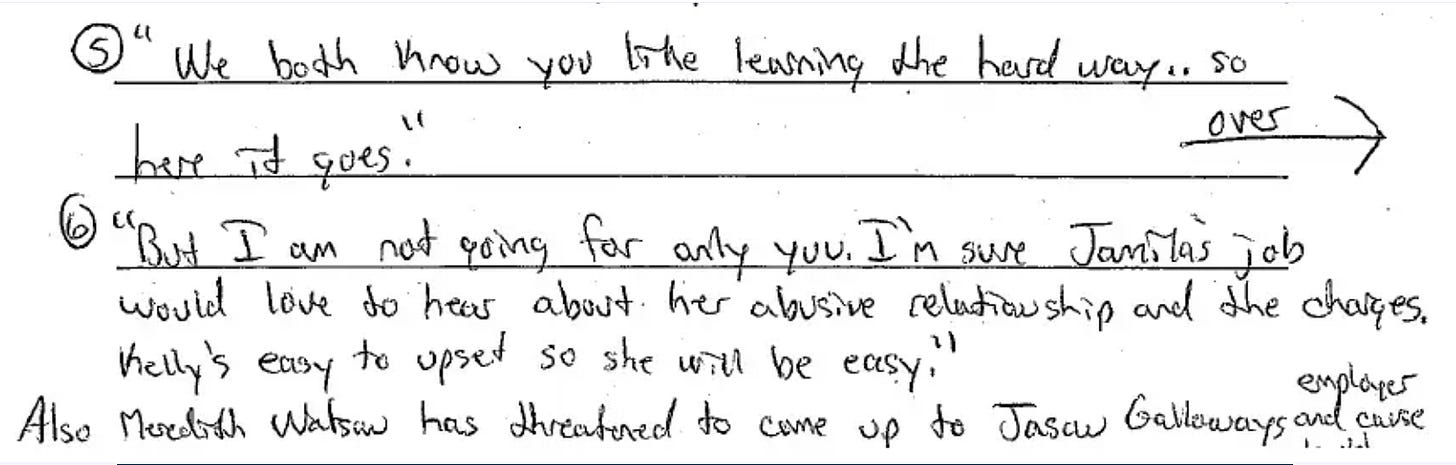 ⑤ "We both know you like learning the hard way.. so
here it goes."
over →
⑥ "But I am not going for only you. I'm sure Jamila's job
would love to hear about her abusive relationship and the charges.
Kelly's easy to upset so she will be easy."
Also Meredith Watson has threatened to come up to Jason Galloways employer and cause